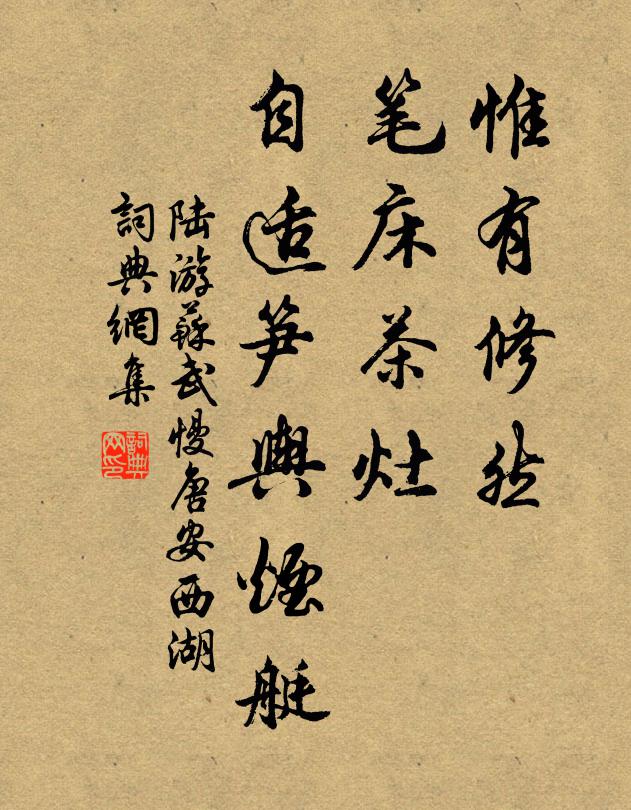 惟有修然
笔床茶灶
自适笋舆煙艇
陆游蘇武慢唐安西湖
詞典網集
詞典网印